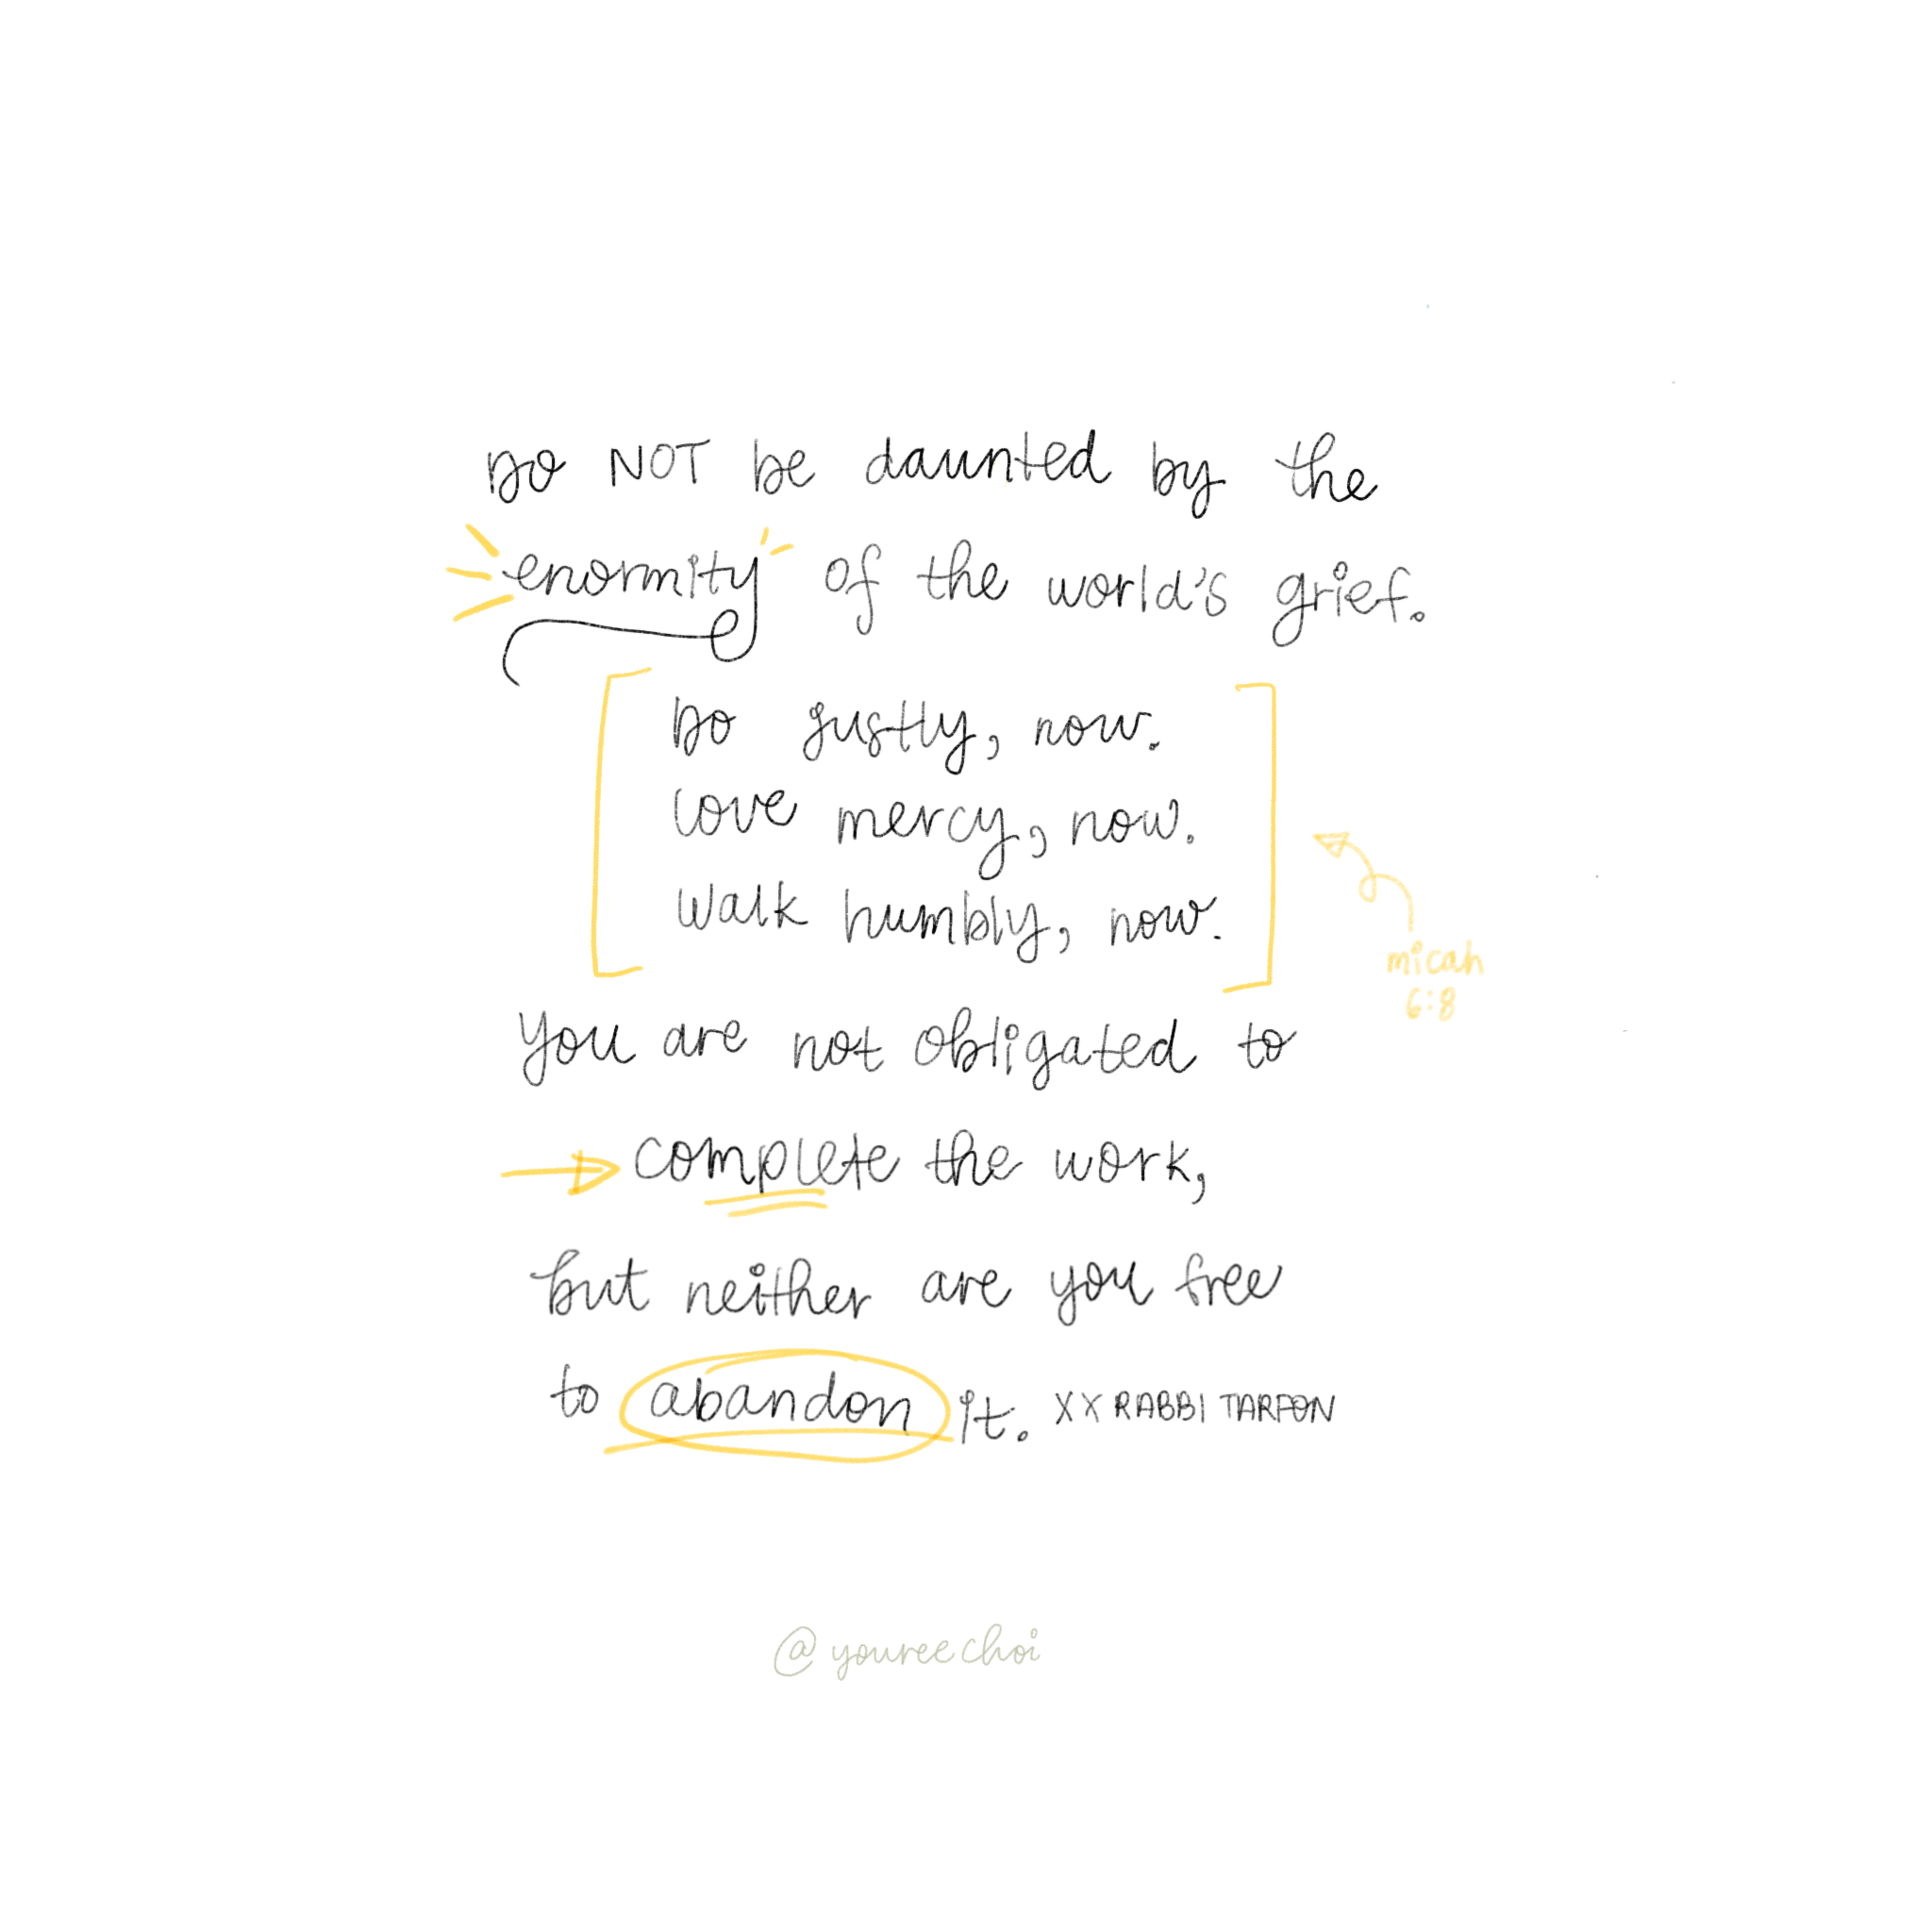 DO NOT be daunted by the
enormity of the world's grief.
Do justly, now.
Love mercy, now.
Walk humbly, now.
micah
6:8
You are not obligated to
complete the work,
but neither are you free
to abandon it. XX RABBI TARFON
@youreechoi